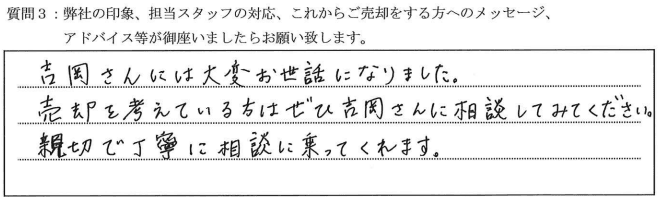 質問３：弊社の印象、担当スタッフの対応、これからご売却をする方へのメッセージ、
アドバイス等が御座いましたらお願い致します。
吉岡さんには大変お世話になりました。
売却を考えている方はぜひ吉岡さんに相談してみてください。
親切で丁寧に相談に乗ってくれます。